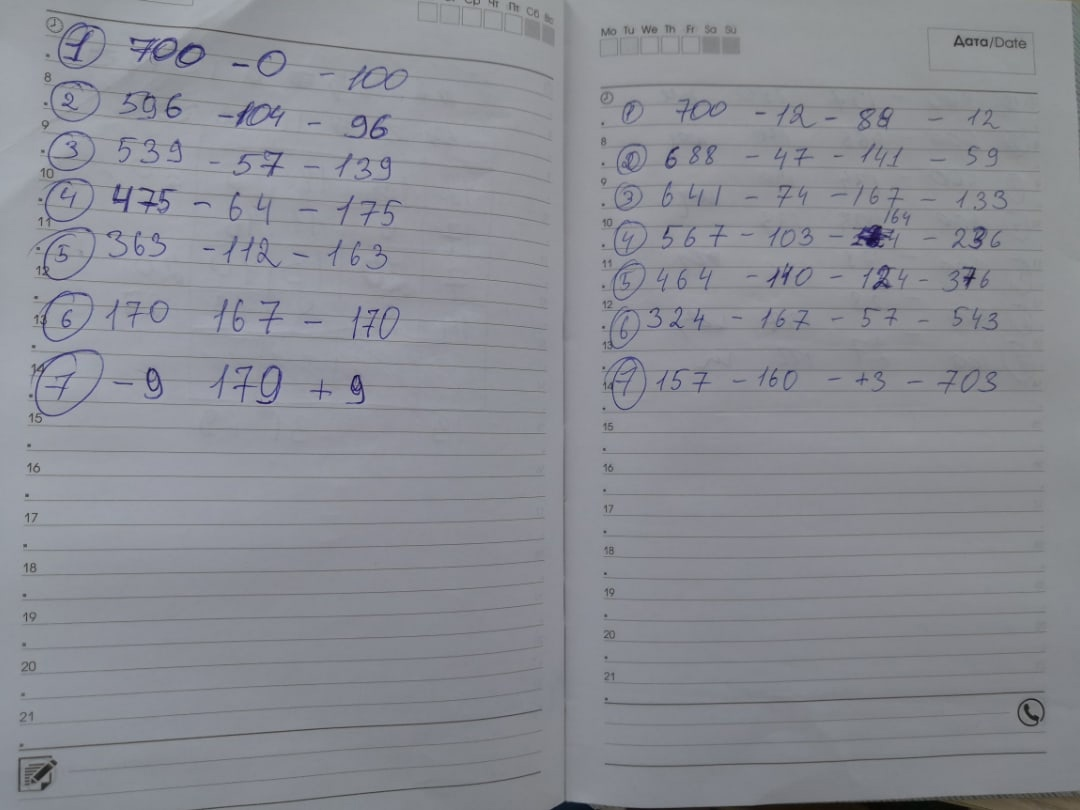 Ср Чт Пт Сб Вс
① 700 - 0 - 100
8
② 596 - 104 - 96
9
③ 539 - 57 - 139
10
④ 475 - 64 - 175
11
⑤ 363 - 112 - 163
12
⑥ 170 167 - 170
13
⑦ - 9 179 + 9
14
15
16
17
18
19
20
21
Mo Tu We Th Fr Sa Su
Дата/Date
① 700 - 12 - 88 - 12
8
② 688 - 47 - 141 - 59
9
③ 641 - 74 - 167 - 133
10
④ 567 - 103 - 164 - 236
11
⑤ 464 - 140 - 124 - 376
12
⑥ 324 - 167 - 57 - 543
13
⑦ 157 - 160 - +3 - 703
14
15
16
17
18
19
20
21